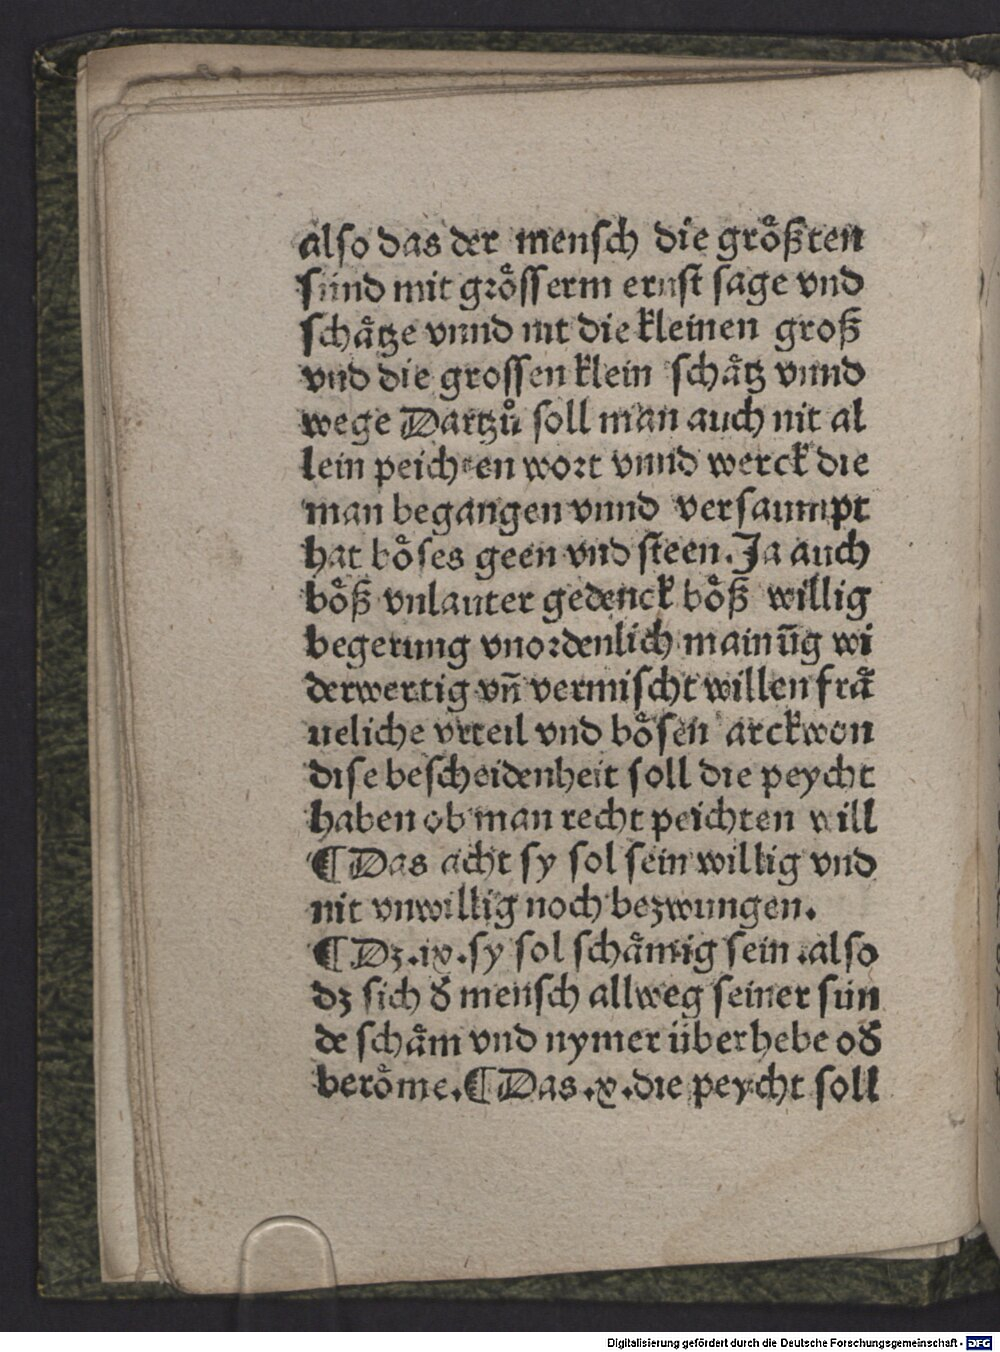 also das der mensch die groͤßten
sünd mit groͤsserm ernst sage vnd
schaͤtze vnnd nit die kleinen groß
vnd die grossen klein schaͤtz vnnd
wege Dartzuͦ soll man auch nit al
lein peichten wort vnnd werck die
man begangen vnnd versaumpt
hat boͤses geen vnd steen. Ja auch
boͤß vnlauter gedenck boͤß willig
begerung vnordenlich mainūg wi
derwertig vn̄ vermischt willen fraͤ
ueliche vrteil vnd boͤsen arckwon
dise bescheidenheit soll die peycht
haben ob man recht peichten will
¶ Das acht sy sol sein willig vnd
nit vnwillig noch bezwungen.
¶ Dz .ix. sy sol schaͤmig sein .also
dz sich d̾ mensch allweg seiner sün
de schaͤm vnd nymer überhebe od̾
beroͤme. ¶ Das .x. die peycht soll
Digitalisierung gefördert durch die Deutsche Forschungsgemeinschaft - DFG